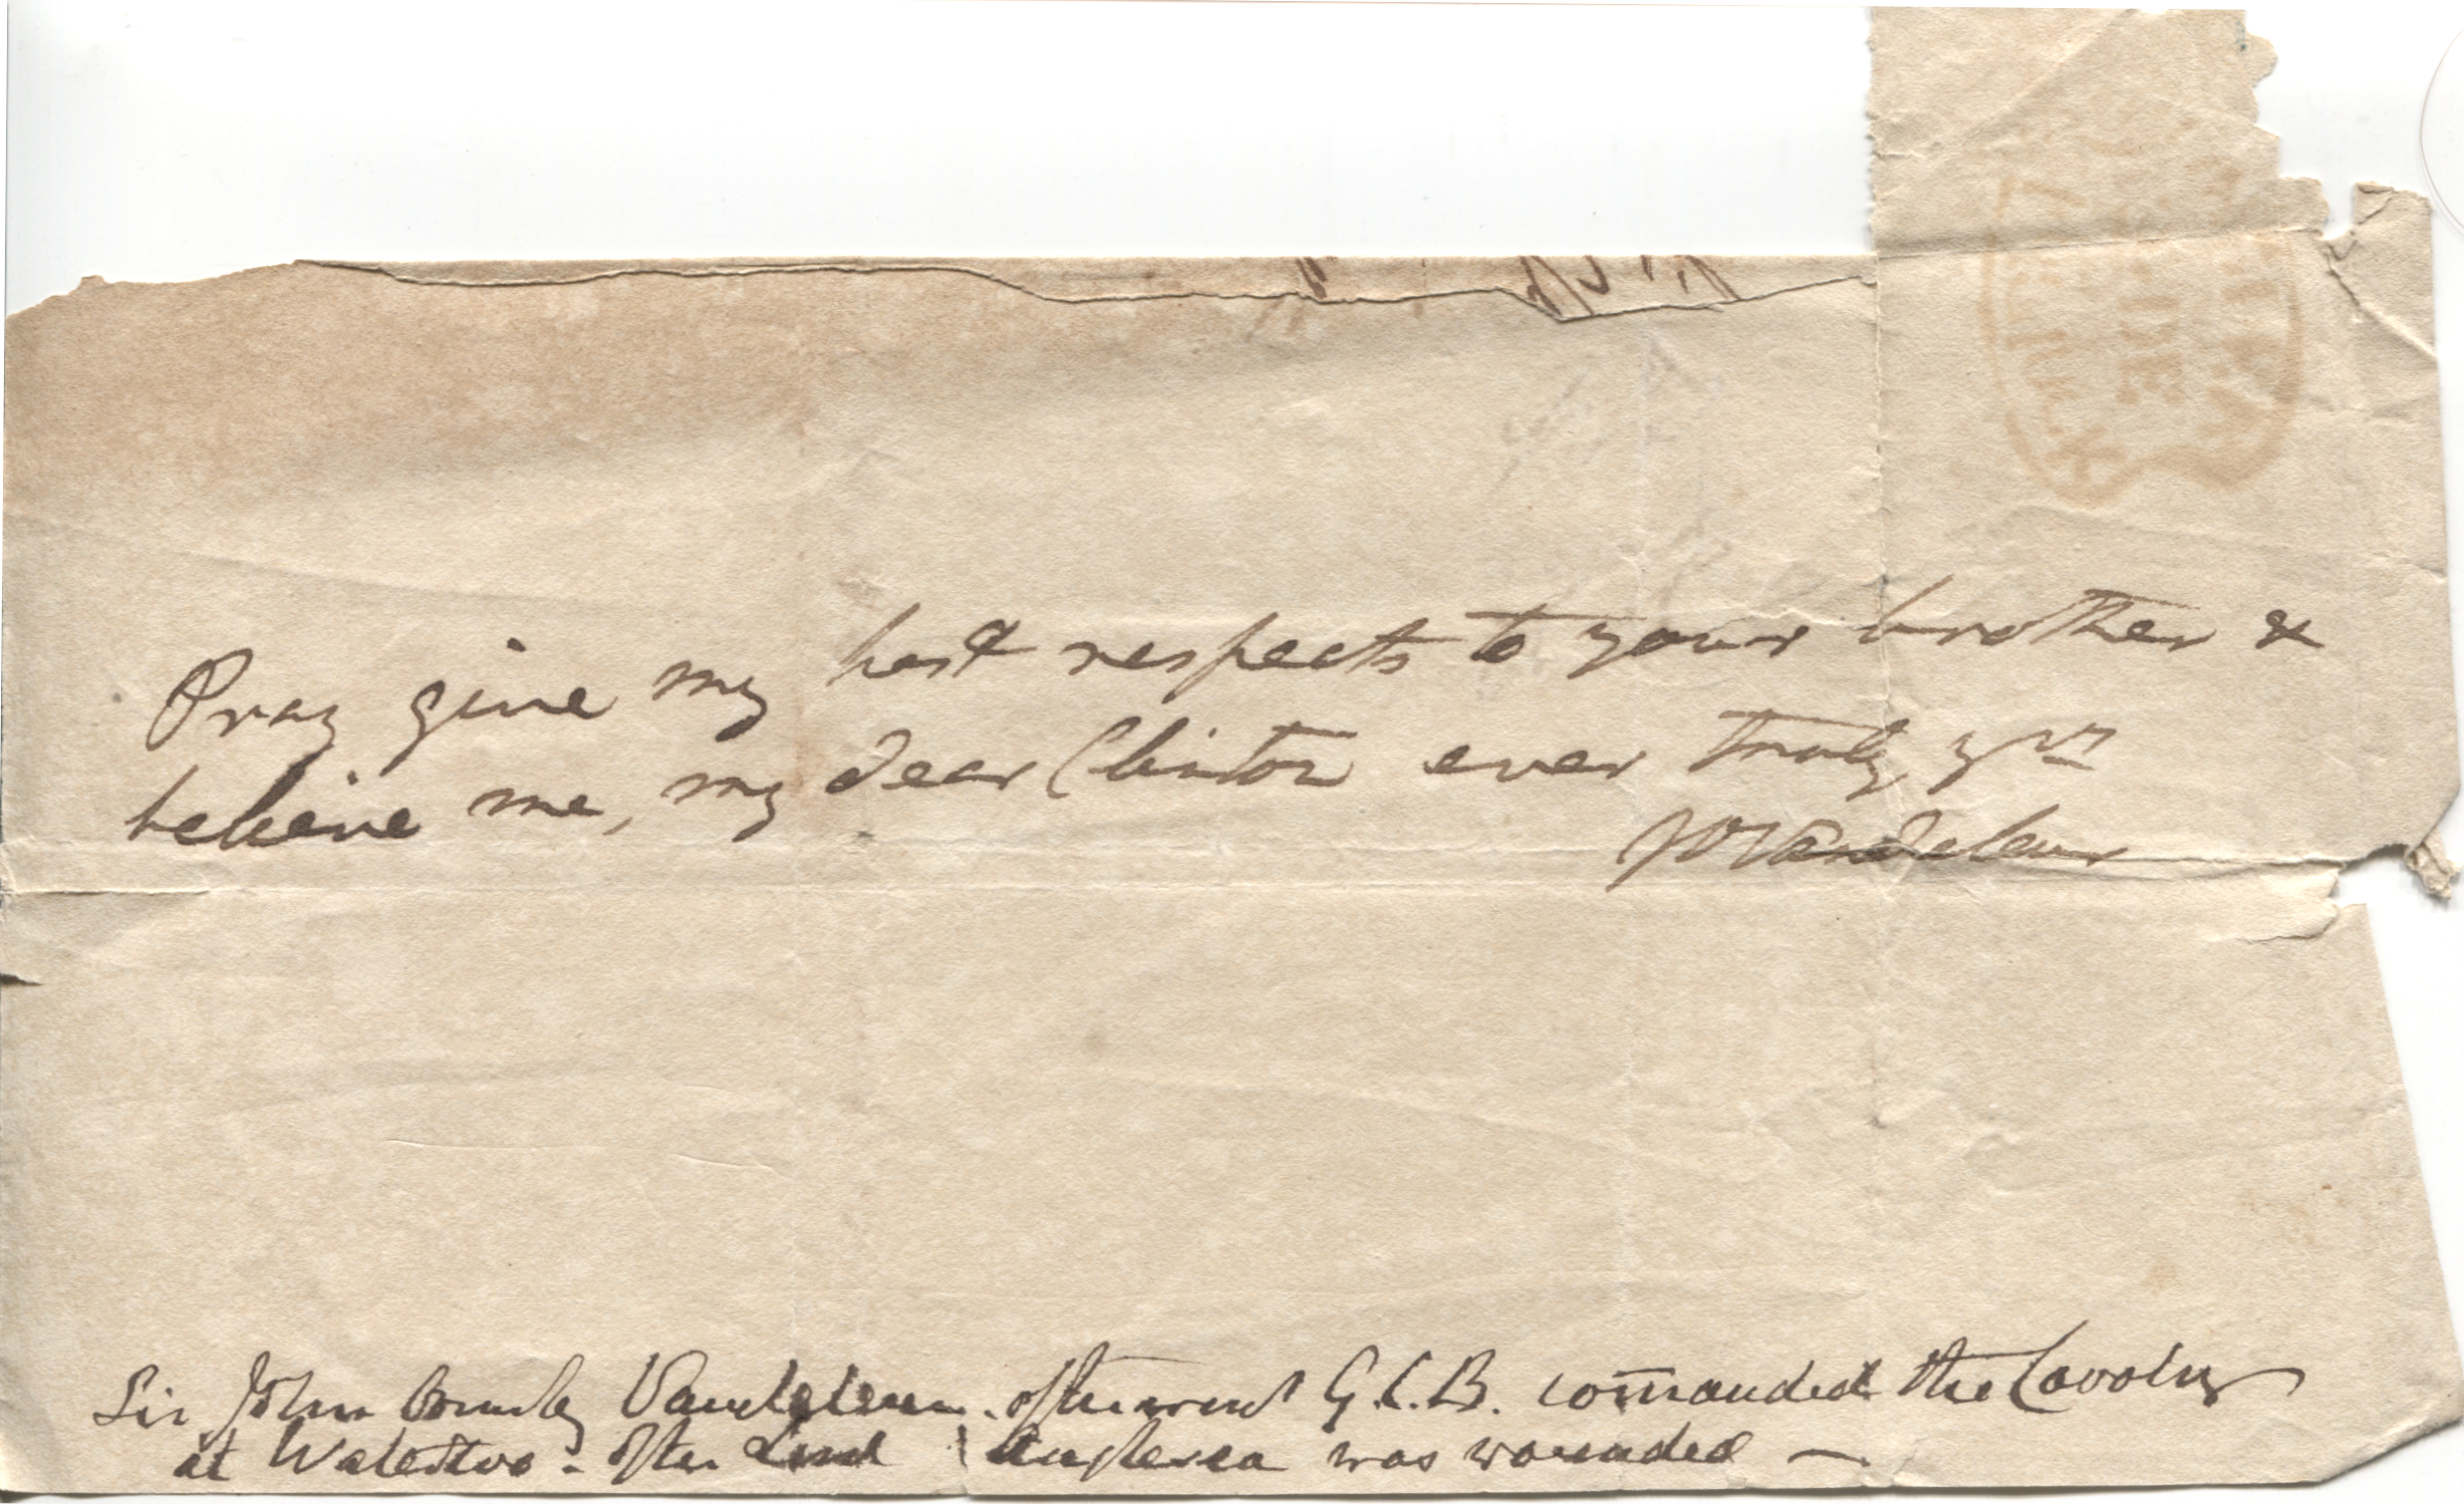 Pray give my best respects to your brother &
believe me, my dear Clinton ever truly yrs
JO Vandeleur
Sir John Ormsby Vandeleur. afterward G.C.B. comanded the Cavalry
at Waterloo - after Lord Anglesea was wounded —